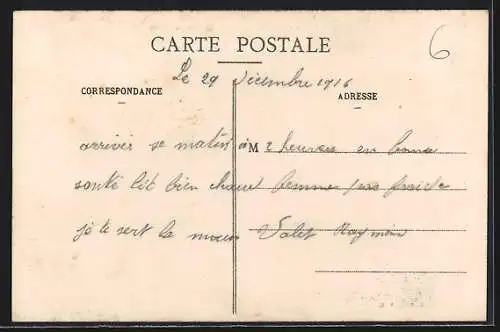 CARTE POSTALE
6
Le 29 Décembre 1916
CORRESPONDANCE
ADRESSE
arriver se matin à M 2 heures en bonne
santé lit bien chaud femmes pas froide
je te sert la main Valet Raymond